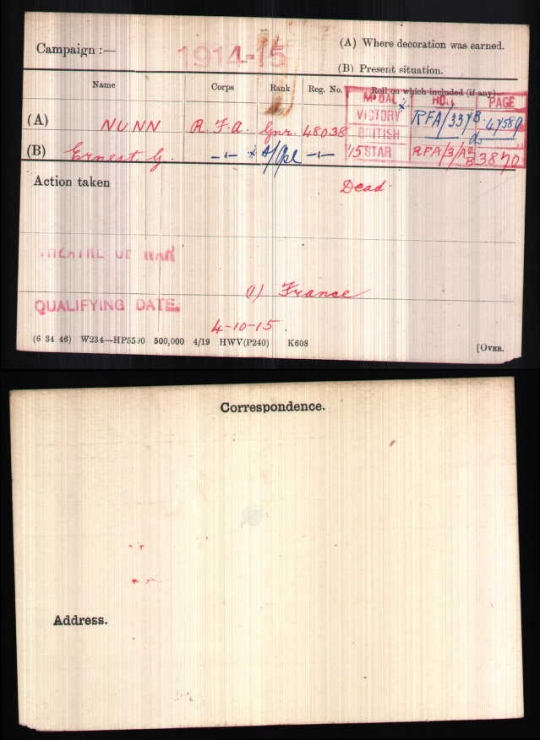 Campaign :—
1914-15
(A) Where decoration was earned.
(B) Present situation.
Name Corps Rank Reg. No. Roll on which included (if any).
MEDAL ROLL PAGE
(A) NUNN R.F.A. Gnr. 48038
VICTORY RFA/337B
BRITISH
(B) Ernest G. —"— x A/Cpl —"—
'15 STAR RFA/3/ 3870
Action taken
Dead
THEATRE OF WAR
(1) France
QUALIFYING DATE.
4-10-15.
(6 34 46) W234—HP5590 500,000 4/19 HWV(P240) K608
[OVER.
Correspondence.
Address.